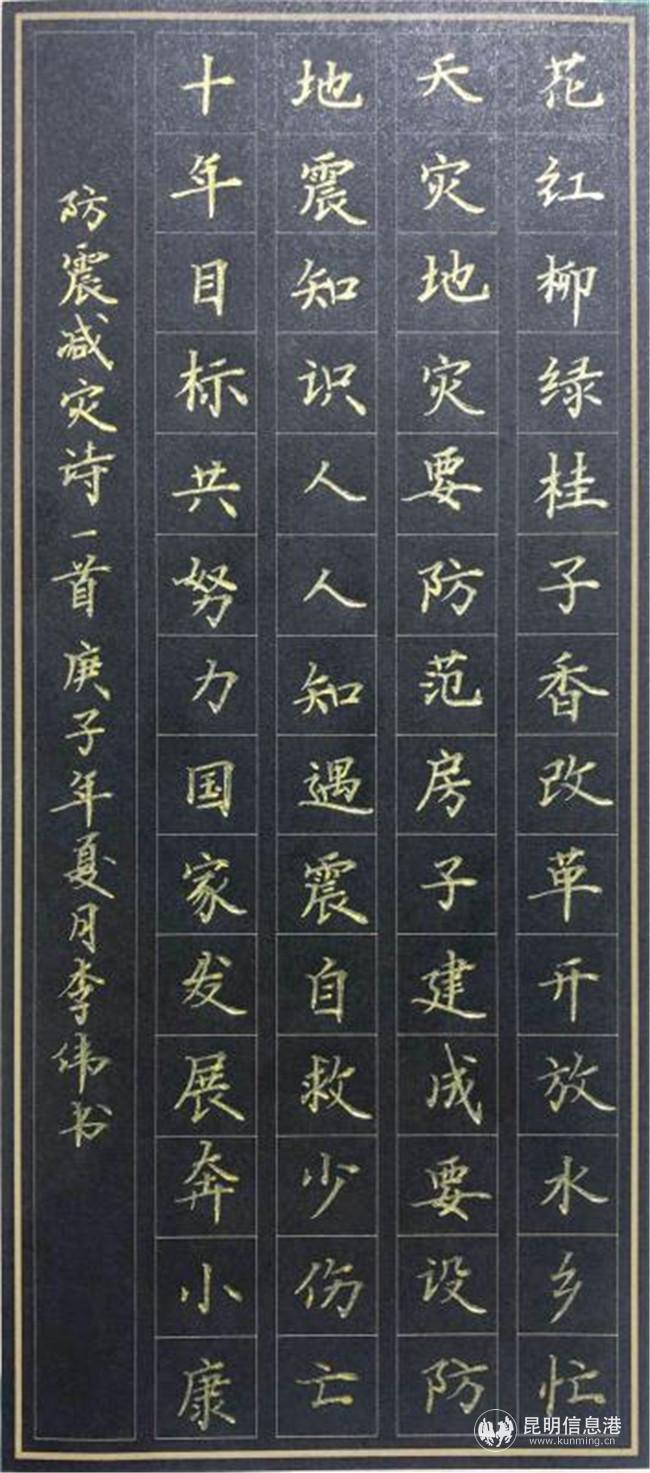 花红柳绿桂子香改革开放水乡忙
天灾地灾要防范房子建成要设防
地震知识人人知遇震自救少伤亡
十年目标共努力国家发展奔小康
防震减灾诗一首 庚子年夏月李伟书
昆明信息港
www.kunming.cn